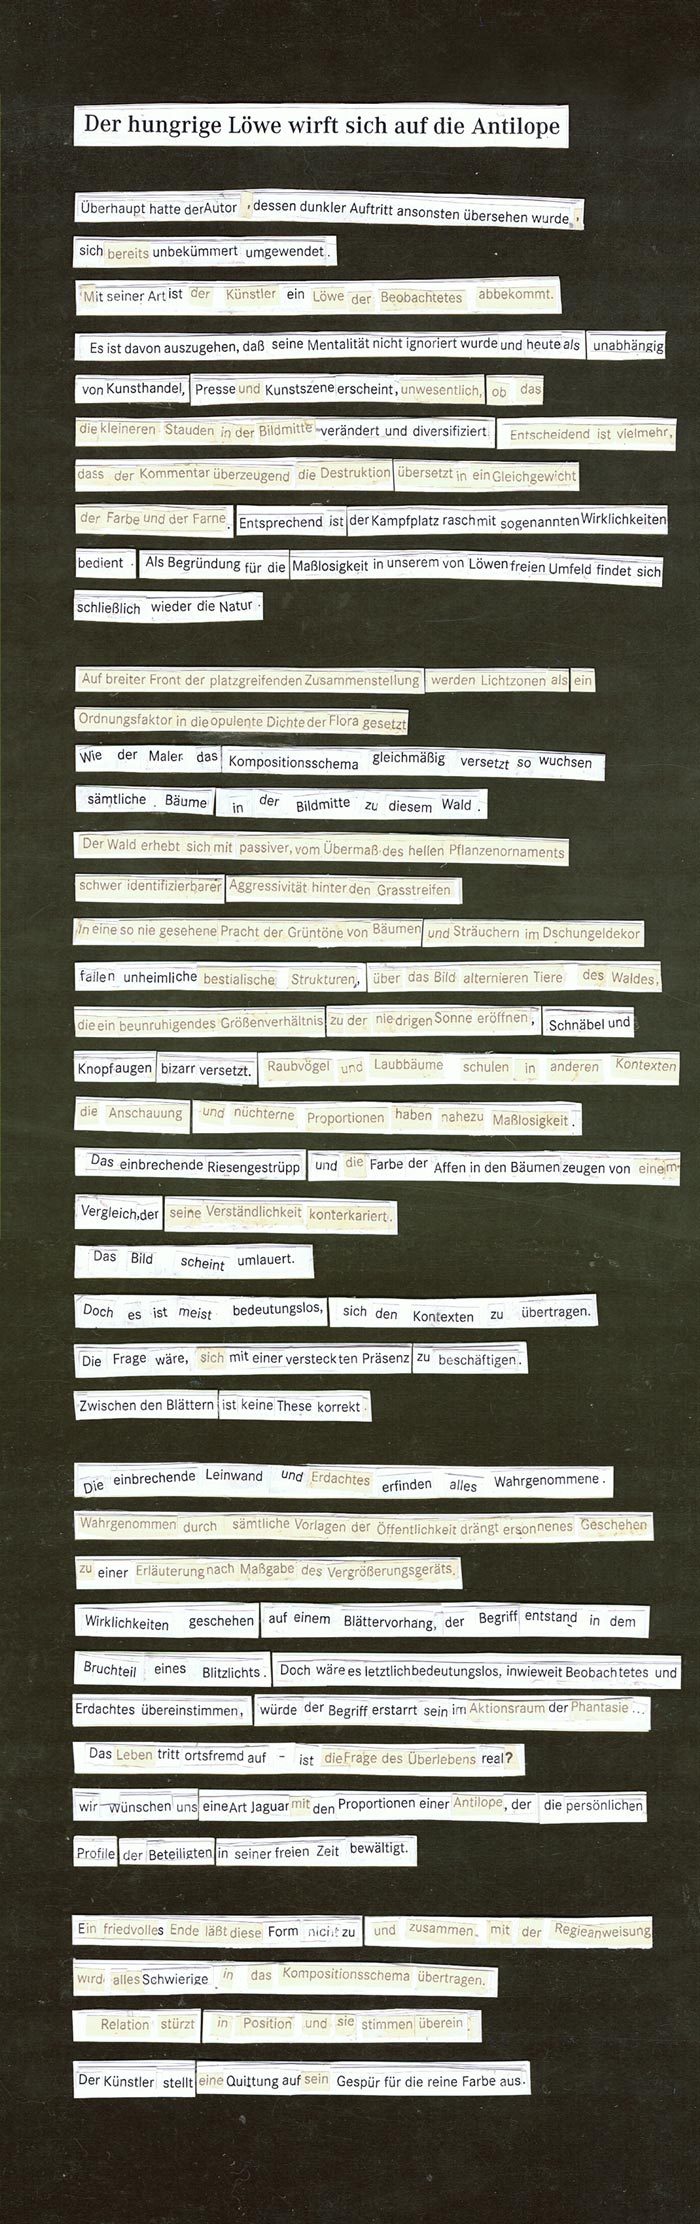 Der hungrige Löwe wirft sich auf die Antilope
Überhaupt hatte derAutor , dessen dunkler Auftritt ansonsten übersehen wurde ,
sich bereits unbekümmert umgewendet .
Mit seiner Art ist der Künstler ein Löwe der Beobachtetes abbekommt.
Es ist davon auszugehen, daß seine Mentalität nicht ignoriert wurde und heute als unabhängig
von Kunsthandel, Presse und Kunstszene erscheint, unwesentlich, ob das
die kleineren Stauden in der Bildmitte verändert und diversifiziert. Entscheidend ist vielmehr,
dass der Kommentar überzeugend die Destruktion übersetzt in ein Gleichgewicht
der Farbe und der Farne . Entsprechend ist der Kampfplatz rasch mit sogenannten Wirklichkeiten
bedient . Als Begründung für die Maßlosigkeit in unserem von Löwen freien Umfeld findet sich
schließlich wieder die Natur .
Auf breiter Front der platzgreifenden Zusammenstellung werden Lichtzonen als ein
Ordnungsfaktor in die opulente Dichte der Flora gesetzt
Wie der Maler das Kompositionsschema gleichmäßig versetzt so wuchsen
sämtliche Bäume in der Bildmitte zu diesem Wald .
Der Wald erhebt sich mit passiver, vom Übermaß des hellen Pflanzenornaments
schwer identifizierbarer Aggressivität hinter den Grasstreifen
In eine so nie gesehene Pracht der Grüntöne von Bäumen und Sträuchern im Dschungeldekor
fallen unheimliche bestialische Strukturen, über das Bild alternieren Tiere des Waldes,
die ein beunruhigendes Größenverhältnis zu der niedrigen Sonne eröffnen , Schnäbel und
Knopfaugen bizarr versetzt. Raubvögel und Laubbäume schulen in anderen Kontexten
die Anschauung und nüchterne Proportionen haben nahezu Maßlosigkeit .
Das einbrechende Riesengestrüpp und die Farbe der Affen in den Bäumen zeugen von einem
Vergleich,der seine Verständlichkeit konterkariert.
Das Bild scheint umlauert.
Doch es ist meist bedeutungslos, sich den Kontexten zu übertragen.
Die Frage wäre, sich mit einer versteckten Präsenz zu beschäftigen.
Zwischen den Blättern ist keine These korrekt .
Die einbrechende Leinwand und Erdachtes erfinden alles Wahrgenommene .
Wahrgenommen durch sämtliche Vorlagen der Öffentlichkeit drängt ersonnenes Geschehen
zu einer Erläuterung nach Maßgabe des Vergrößerungsgeräts.
Wirklichkeiten geschehen auf einem Blättervorhang, der Begriff entstand in dem
Bruchteil eines Blitzlichts . Doch wäre es letztlich bedeutungslos, inwieweit Beobachtetes und
Erdachtes übereinstimmen, würde der Begriff erstarrt sein im Aktionsraum der Phantasie ...
Das Leben tritt ortsfremd auf – ist die Frage des Überlebens real?
wir wünschen uns eine Art Jaguar mit den Proportionen einer Antilope, der die persönlichen
Profile der Beteiligten in seiner freien Zeit bewältigt.
Ein friedvolles Ende läßt diese Form nicht zu und zusammen mit der Regieanweisung
wird alles Schwierige in das Kompositionsschema übertragen.
Relation stürzt in Position und sie stimmen überein
Der Künstler stellt eine Quittung auf sein Gespür für die reine Farbe aus.